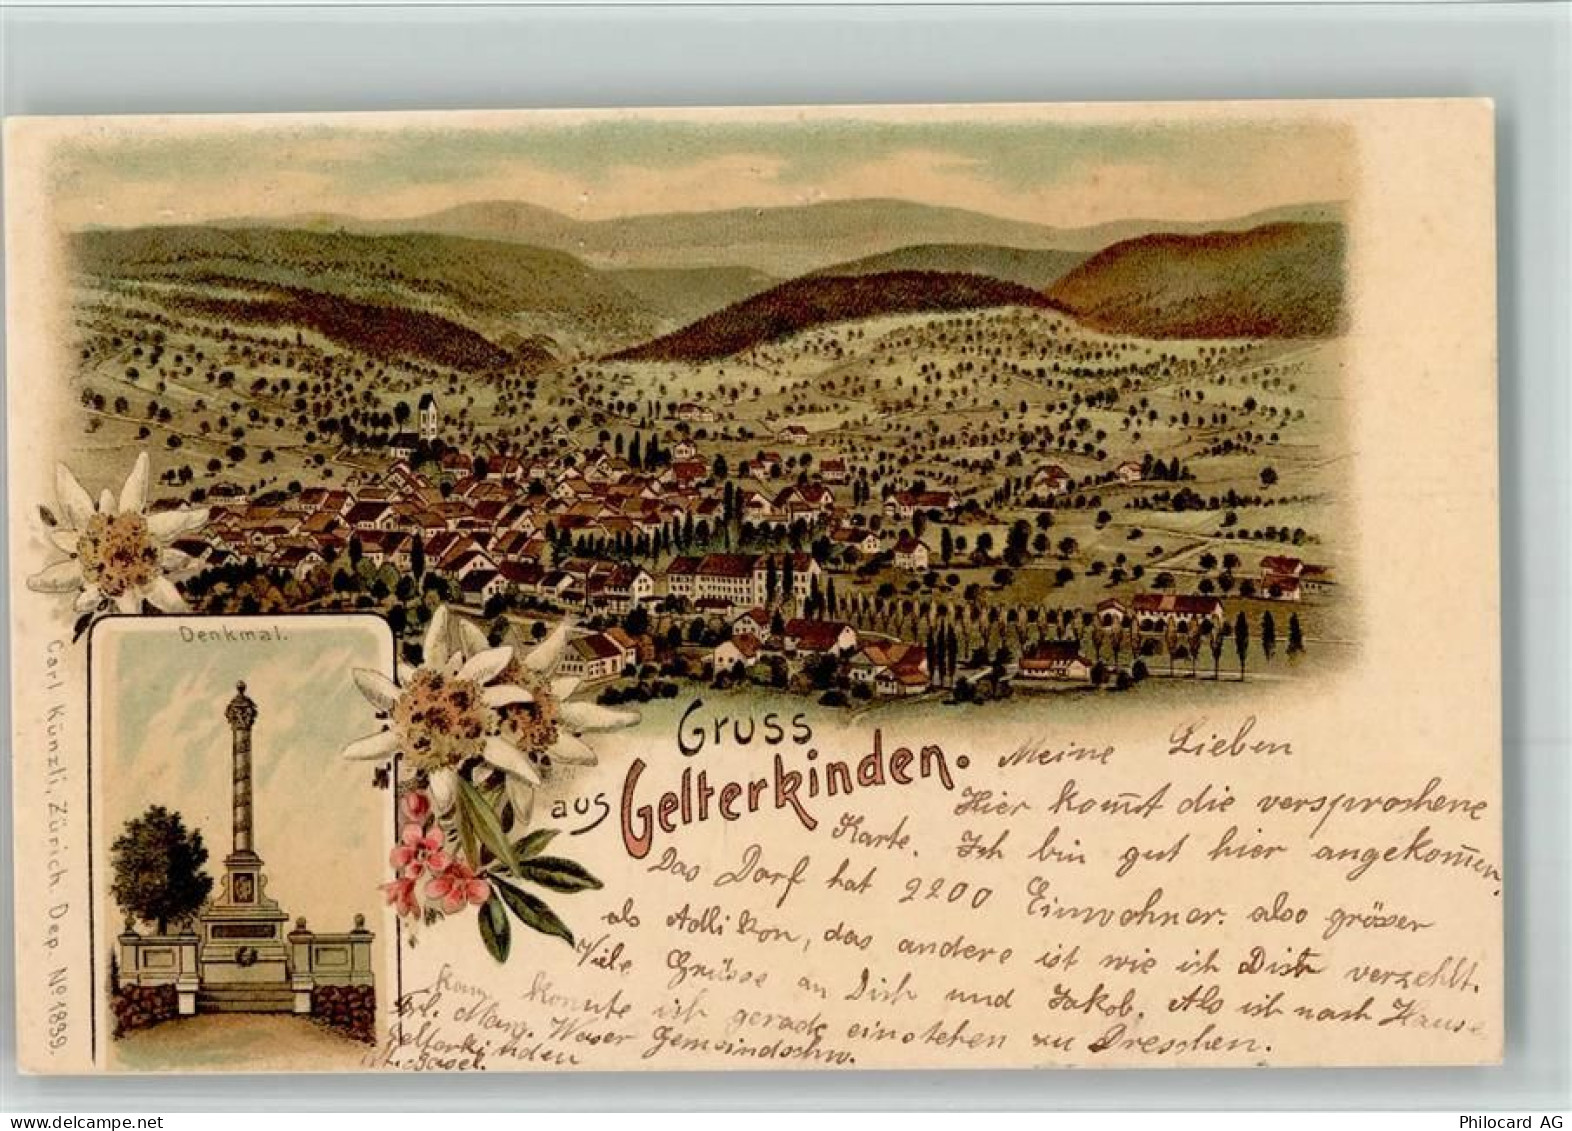 Denkmal.
Carl Künzli, Zürich. Dep. No 1839.
Gruss
aus Gelterkinden.
Meine Lieben
Hier kom̄t die versprochene
Karte. Ich bin gut hier angekom̄en.
Das Dorf hat 2200 Einwohner. also grösser
als Adlikon, das andere ist wie ich Dich verzehlt.
Viele Grüsse an Dich und Jakob. Als ich nach Hause
kam konnte ich gerade einstehen zu Dreschen.
Frl. Marg. Waser Gemeindschw.
Gelterkinden
Philocard AG